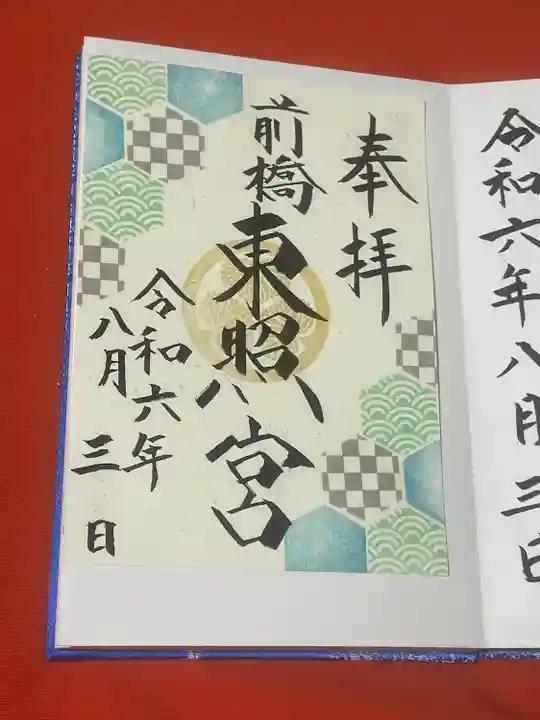 奉拝
前橋
東照宮
令和六年
八月三日
令和六年八月三日